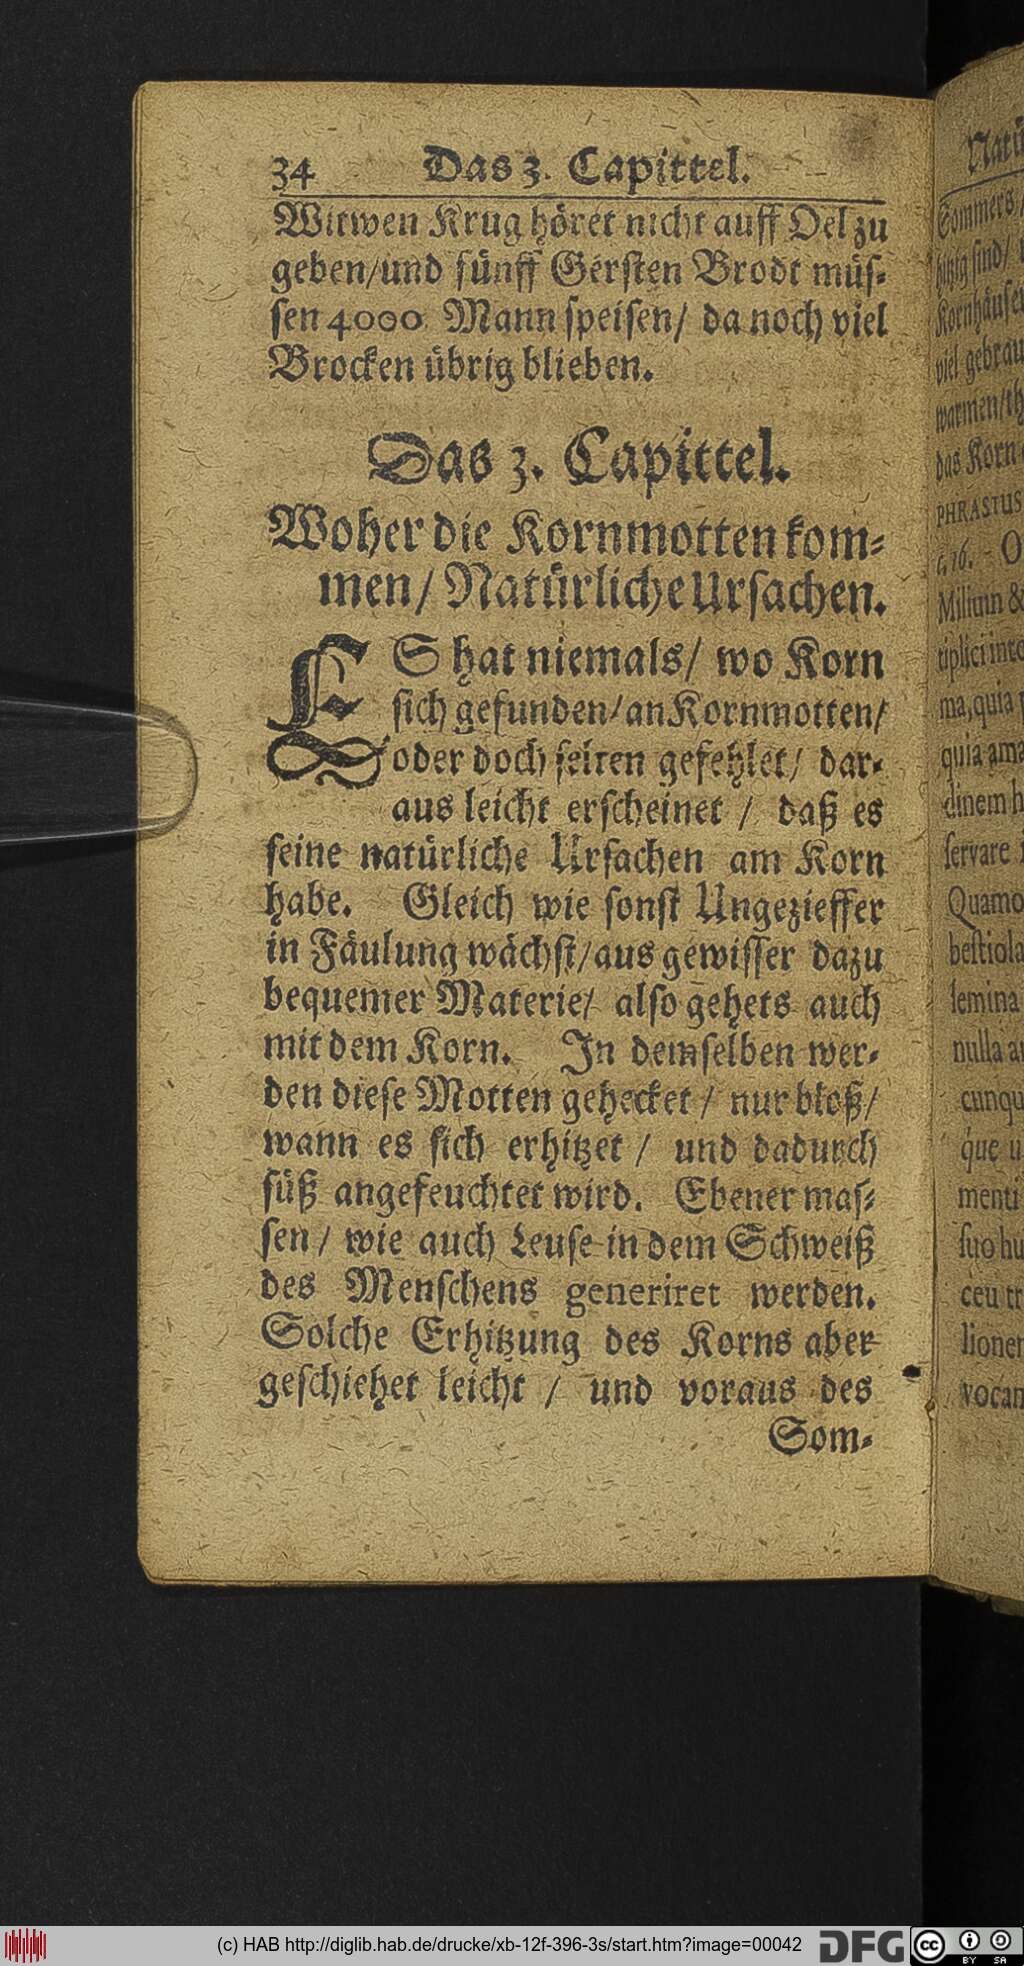 34 Das 3. Capittel.
Witwen Krug höret nicht auff Oel zu
geben/und fünff Gersten Brodt müs-
sen 4000 Mann speisen/ da noch viel
Brocken übrig blieben.
Das 3. Capittel.
Woher die Kornmotten kom-
men/ Natürliche Ursachen.
ES hat niemals/ wo Korn
sich gefunden/an Kornmotten/
oder doch selten gefehlet/ dar-
aus leicht erscheinet / daß es
seine natürliche Ursachen am Korn
habe. Gleich wie sonst Ungezieffer
in Fäulung wächst/aus gewisser dazu
bequemer Materie/ also gehets auch
mit dem Korn. In demselben wer-
den diese Motten gehecket / nur bloß/
wann es sich erhitzet / und dadurch
süß angefeuchtet wird. Ebener mas-
sen / wie auch Leuse in dem Schweiß
des Menschens generiret werden.
Solche Erhitzung des Korns aber
geschiehet leicht / und voraus des
Som-
Sommers
hitzig sind/
viel
das Korn
PHRASTUS
c. 16. O
Milium &
ma, quia
quia
dinem
servare
Quamo
bestiola
semina
nulla
cunqu
que
menti
suo hu
ceu
lionem
vocan
(c) HAB http://diglib.hab.de/drucke/xb-12f-396-3s/start.htm?image=00042
DFG
cc BY SA